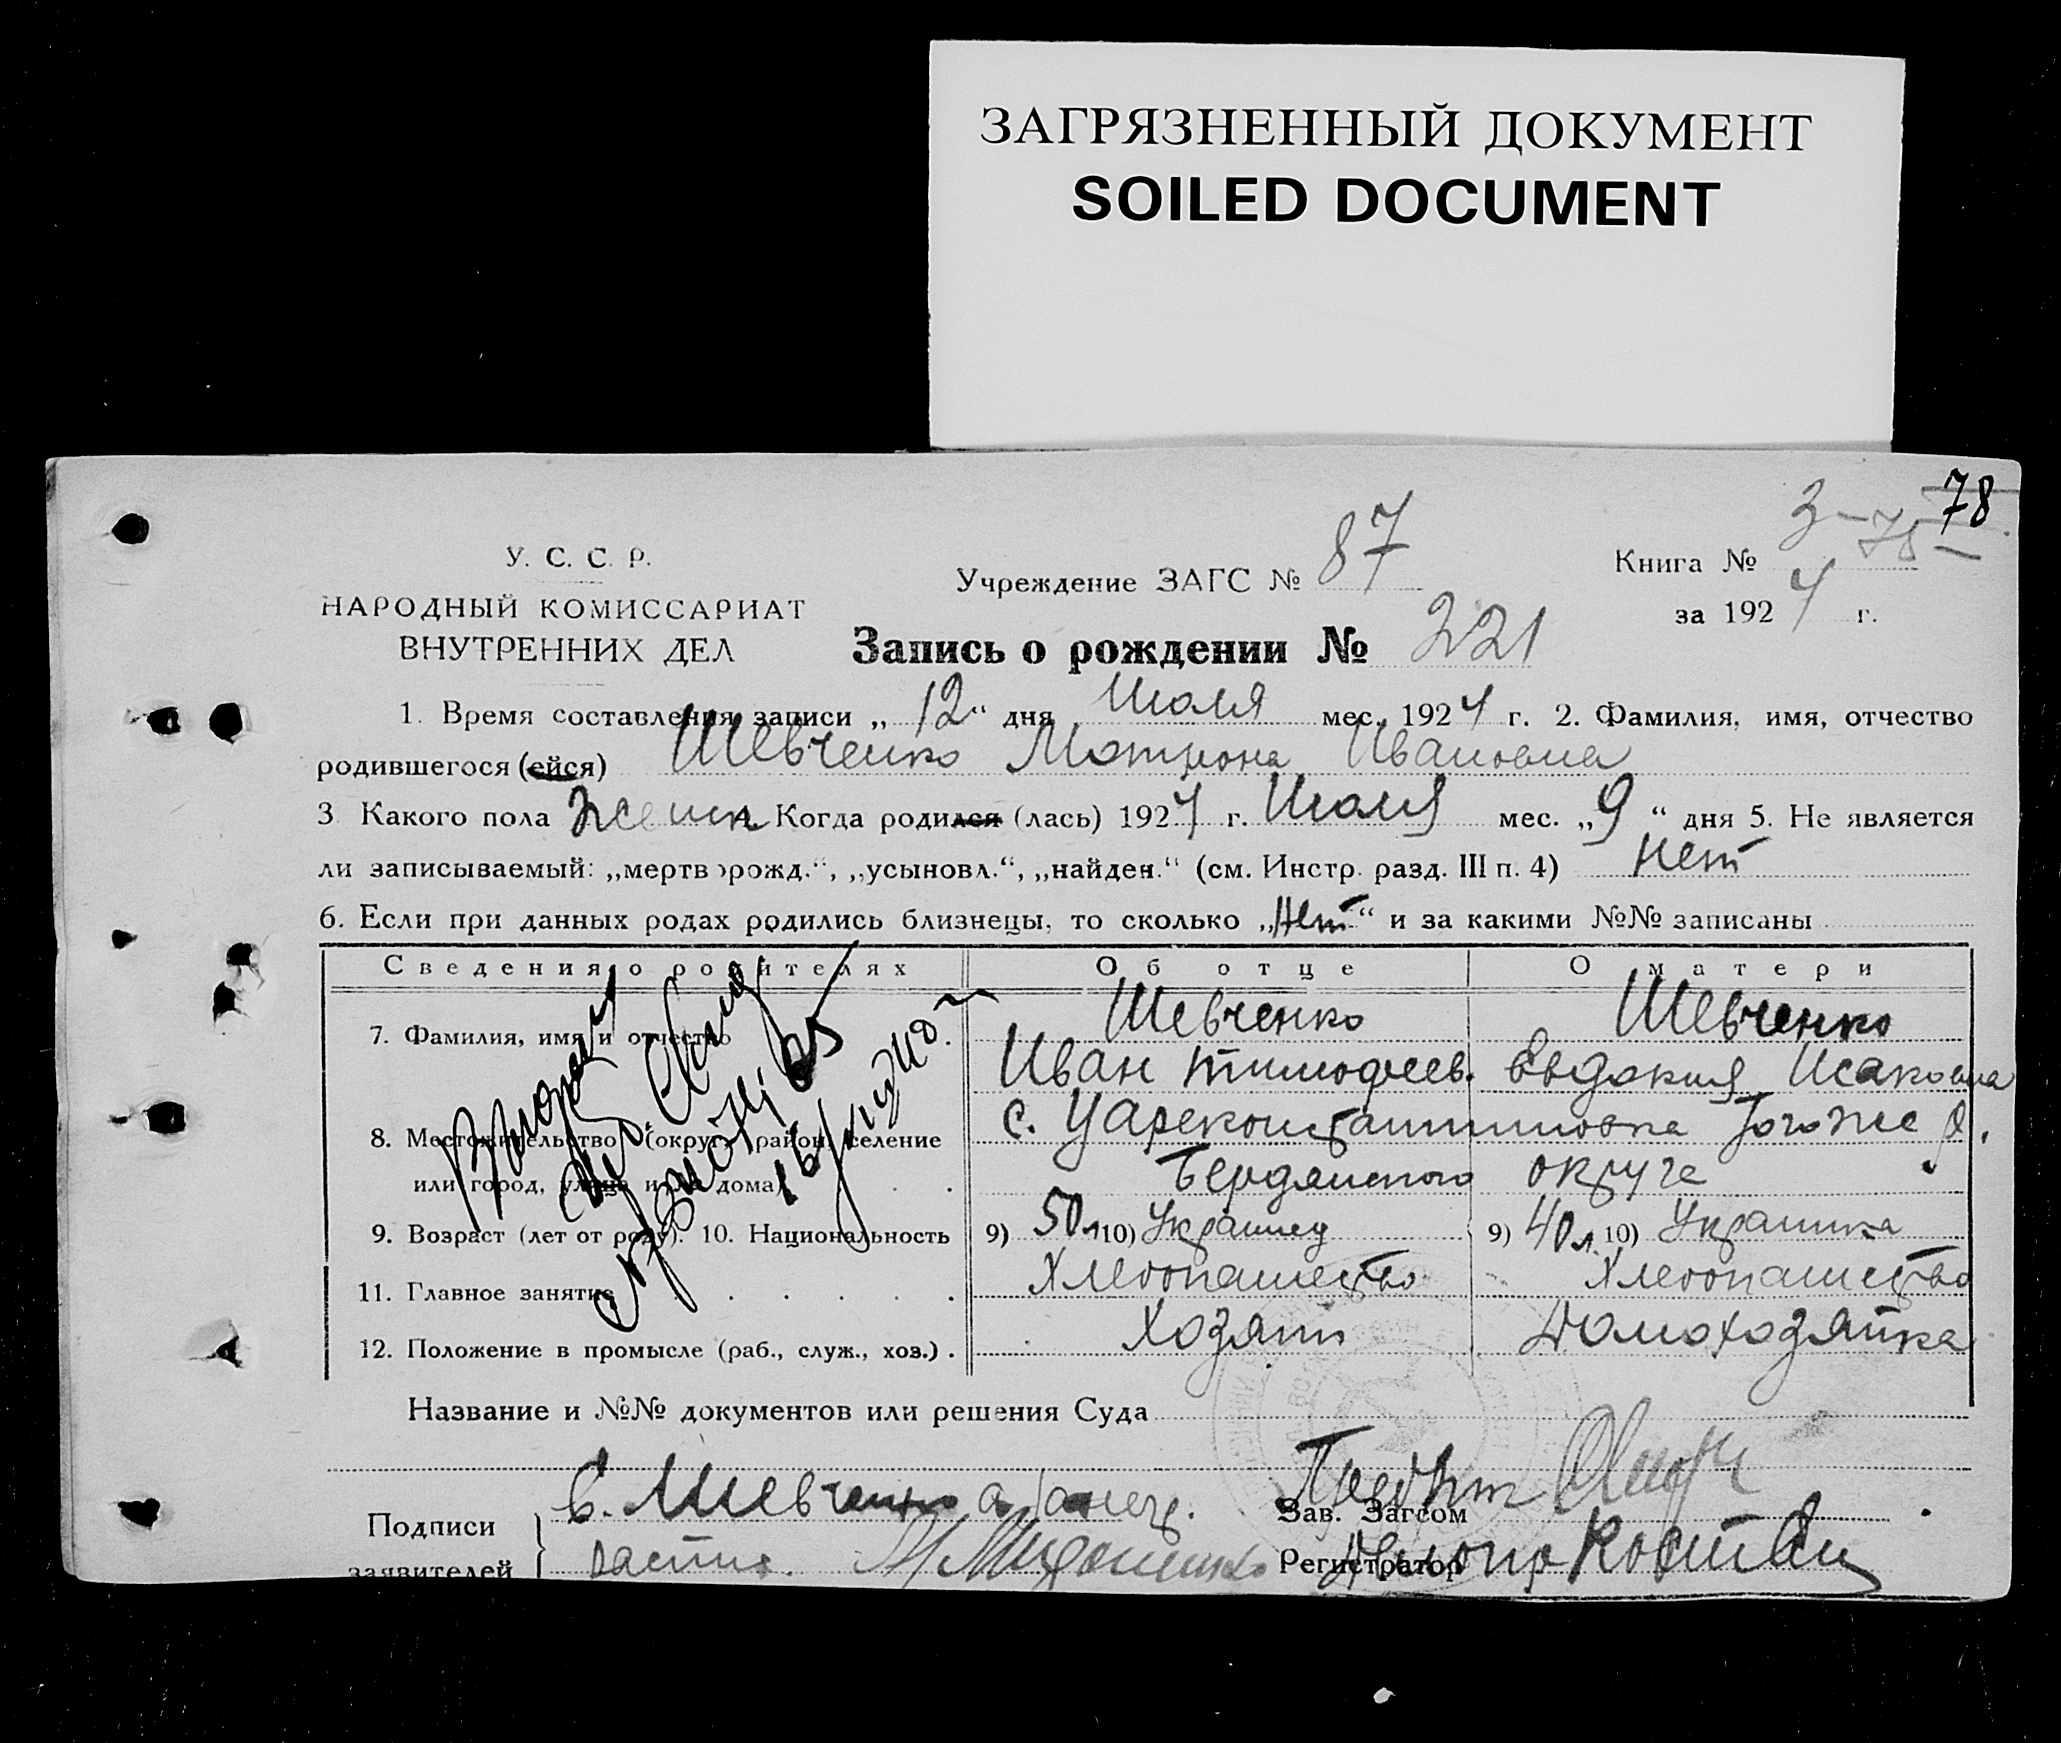 ЗАГРЯЗНЕННЫЙ ДОКУМЕНТ
SOILED DOCUMENT
78
У. С. С. Р.
НАРОДНЫЙ КОМИССАРИАТ
ВНУТРЕННИХ ДЕЛ
Учреждение ЗАГС № 87
Книга № 3
за 1924 г.
Запись о рождении № 221
1. Время составления записи „12“ дня Июля мес. 1924 г. 2. Фамилия, имя, отчество
родившегося (ейся) Шевченко Мотрона Ивановна
3 Какого пола женск 4. Когда родился (лась) 1924 г. Июля мес. „9“ дня 5. Не является
ли записываемый: „мертворожд.“, „усыновл.“, „найден.“ (см. Инстр. разд. III п. 4) нет
6. Если при данных родах родились близнецы, то сколько „Нет“ и за какими №№ записаны
Сведения о родителях Об отце О матери
7. Фамилия, имя и отчество Шевченко Шевченко
Иван Тимофеев. Евдокия Исаковна
8. Местожительство (округ, район, селение с. Цареконстантиновка того же р.
или город, улица и № дома) Бердянского округа
9. Возраст (лет от роду). 10. Национальность 9) 50 л 10) Украинец 9) 40 л. 10) Украинка
11. Главное занятие Хлебопашество Хлебопашество
12. Положение в промысле (раб., служ., хоз.) Хозяин Домохозяйка
Название и №№ документов или решения Суда
Подписи
заявителей
Шевченко
Зав. Загсом
Регистратор